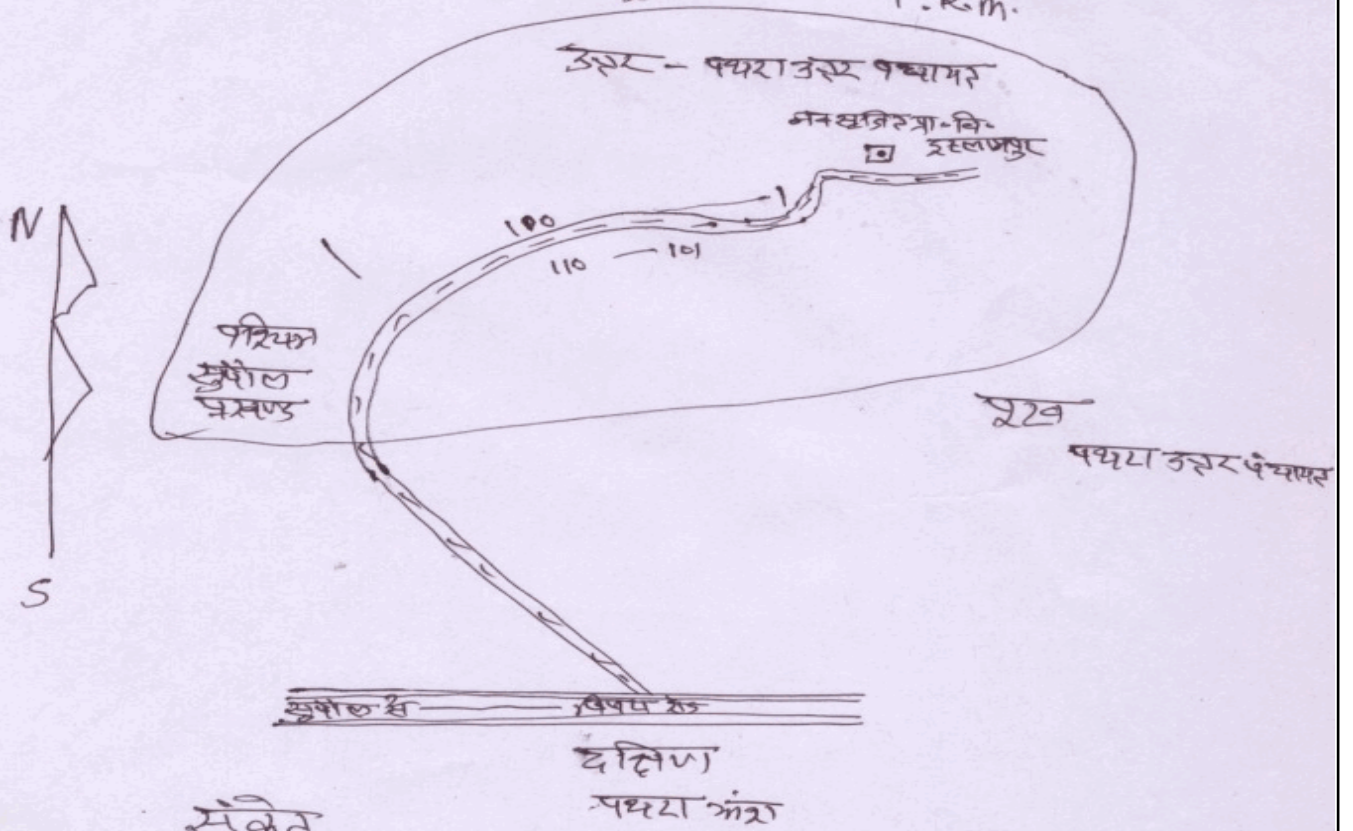 उत्तर - पथरा उत्तर पंचायत
नवसृजित प्रा. वि.
इस्लामपुर
N
1
100
110 — 101
पश्चिम
सुपौल
प्रखण्ड
पूरब
पथरा उत्तर पंचायत
S
सुपौल से
दक्षिण
पथरा अंश
संकेत